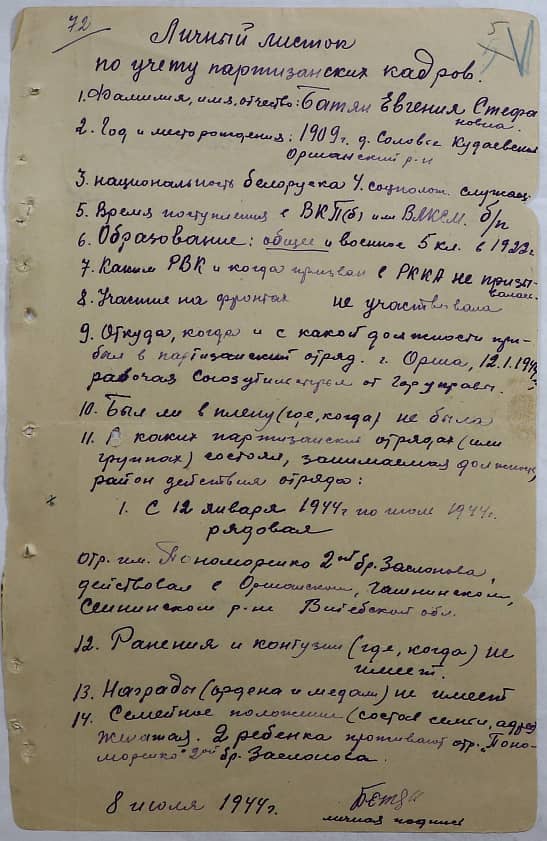 72
5
Личный листок
по учету партизанских кадров.
1. Фамилия, имя, отчество: Батян Евгения Стефа
новна.
2. Год и место рождения: 1909г. д. Кудаевский
Оршанский р-н
3. национальность белоруска 4. соцполож. служащ.
5. Время поступления в ВКП(б) или ВЛКСМ. б/п
6. Образование: общее и военное 5 кл. в 1922г
7. Каким РВК и когда призван в РККА не призы-
валась.
8. Участие на фронтах не участвовала
9. Откуда, когда и с какой должности при-
был в партизанский отряд. г. Орша, 12.1.1944
рабочая от Горуправы.
10. Был ли в плену (где, когда) не была
11. В каких партизанских отрядах (или
группах) состоял, занимаемая должность,
район действия отряда:
1. С 12 января 1944г по июль 1944г.
рядовая
отр. им. Пономоренко 2ой бр. Заслонова,
действовал в Оршанском,
Сеннинском р-не Витебской обл.
12. Ранения и контузии (где, когда) не
имеет.
13. Награды (ордена и медали) не имеет
14. Семейное положение (состав семьи, адрес)
2 ребенка проживают отр. "Поно-
моренко" 2ой бр. Заслонова.
8 июля 1944г.
личная подпись